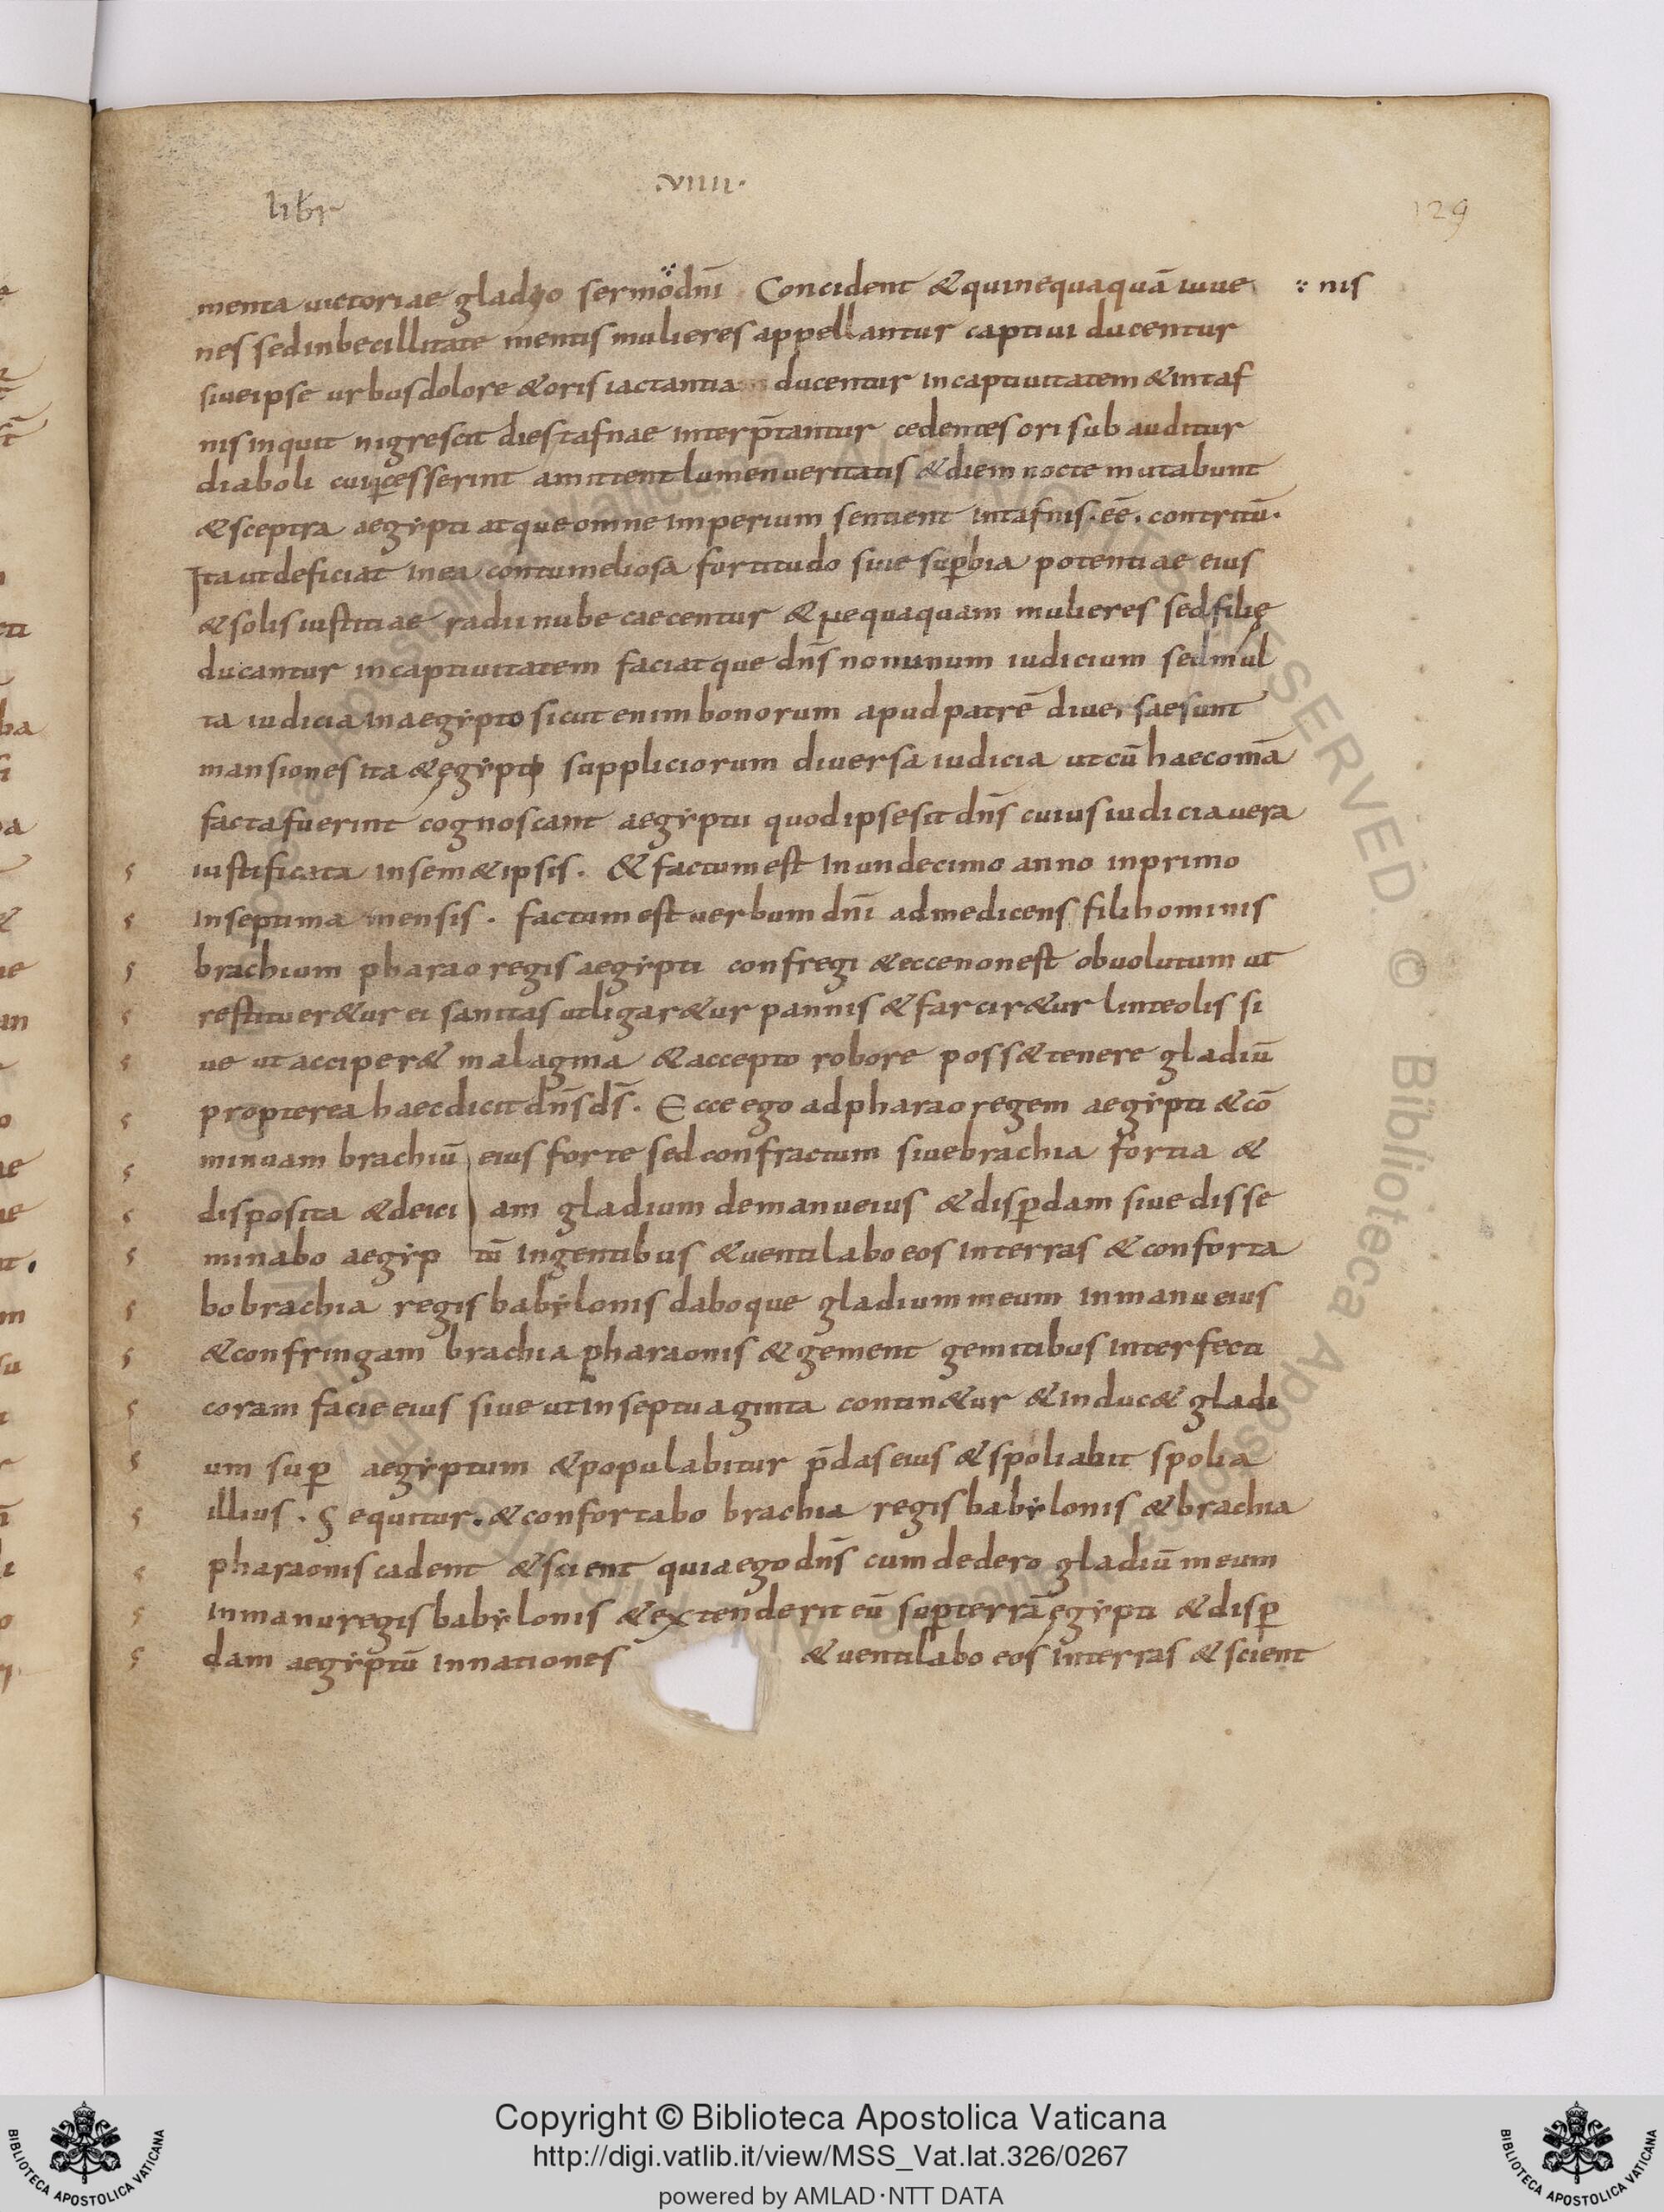 libr
.VIIII.
129
menta uictoriae gladio sermo dn̄i Concident & quinequaquā iuue ჻ nis
nes sed inbecillitate mentis mulieres appellantur captiui ducentur
siue ipse urbus dolore & oris iactantia ducentur incaptiuitatem & intaf
nis inquit nigrescit dies tafnae interp̄tantur cedentes ori sub auditur
diaboli cui cesserint amittent lumen ueritatis & diem nocte mutabunt
& sceptra aegẏpti atque omne imperium sentient intafnis. eē. contritū.
Ita ut deficiat inea contumeliosa fortitudo siue suꝑbia potentiae eius
& solis iustitiae radii nube caecentur & nequaquam mulieres sed filię
ducantur incaptiuitatem faciatque dn̄s non unum iudicium sed mul
ta iudicia in aegẏpto sicut enim bonorum apud patrē diuersae sunt
mansiones ita & ęgẏpti suppliciorum diuersa iudicia ut cū haec omā
facta fuerint cognoscant aegẏptii quod ipse sit dn̄s cuius iudicia uera
iustificata insem& ipsis. & factum est in undecimo anno inprimo
inseptima mensis. factum est uerbum dn̄i ad me dicens fili hominis
brachium pharao regis aegẏpti confregi & ecce non est obuolutum ut
restituer&ur ei sanitas ut ligar&ur pannis & farcir&ur linteolis si
ue ut acciper& malagma & accepto robore poss& tenere gladiū
propterea haec dicit dn̄s ds̄. Ecce ego ad pharao regem aegẏpti & cō
minuam brachiū eius forte sed confractum siue brachia fortia &
disposita & deici am gladium de manu eius & disꝑdam siue disse
minabo aegẏp tū in gentibus & uentilabo eos in terras & conforta
bo brachia regis babẏlonis daboque gladium meum in manu eius
& confringam brachia pharaonis & gement gemitibus interfecti
coram facie eius siue ut in septuaginta contin&ur & induc& gladi
um suꝑ aegẏptum & populabitur p̄das eius & spoliabit spolia
illius. Sequitur. & confortabo brachia regis babẏlonis & brachia
pharaonis cadent & scient quia ego dn̄s cum dedero gladiū meum
in manu regis babẏlonis & extenderit eū suꝑ terrā ęgẏpti & disꝑ
dam aegẏptū in nationes & uentilabo eos in terras & scient
Copyright © Biblioteca Apostolica Vaticana
http://digi.vatlib.it/view/MSS_Vat.lat.326/0267
powered by AMLAD·NTT DATA
BIBLIOTECA APOSTOLICA VATICANA
BIBLIOTECA APOSTOLICA VATICANA